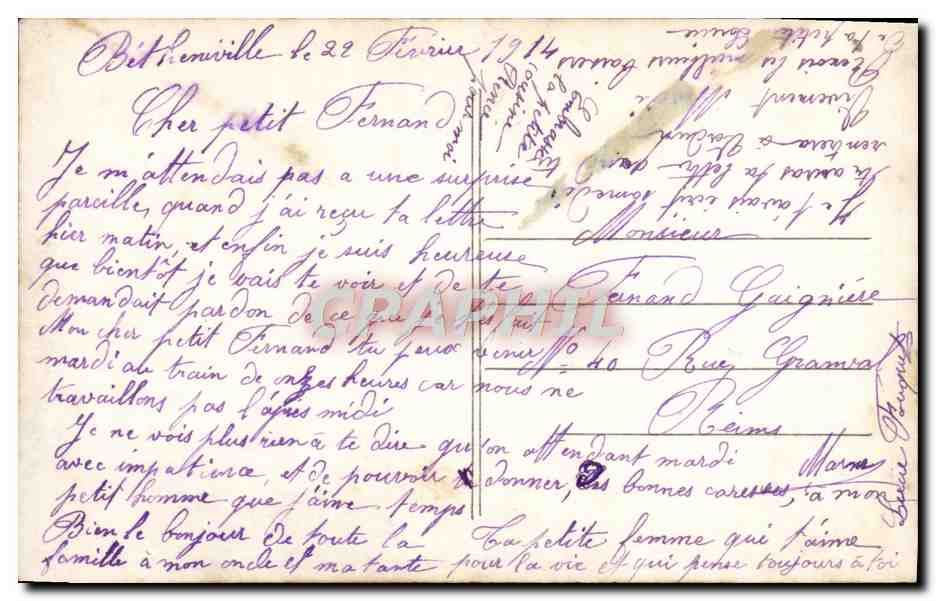 Bétheniville le 22 Février 1914
Cher petit Fernand
Je m'attendais pas a une surprise
pareille, quand j'ai reçu ta lettre
hier matin, et enfin je suis heureuse
que bientôt je vais te voir et de te
demandait pardon de ce que
Mon cher petit Fernand tu peux venir
mardi au train de onzes heures car nous ne
travaillons pas l'après midi
Je ne vois plus rien à te dire qu'on attendant mardi
avec impatience, et de pouvoir donner, des bonnes caresses, à mon
petit homme que j'aime temps
Bien le bonjour de toute la
famille à mon oncle et ma tante
Ta petite femme qui t'aime
pour la vie et qui pense toujours à toi
Embrasse
la petite
cousine
Renée
pour moi
Je t'avais écrit samedi
tu auras ta lettre
rentrera à
Vivement Mardi
Reçois les meilleurs baisers
De ta petite
Monsieur
Fernand Gaignière
N° 40 Rue Granval
Reims
Marne
CPAPHIL